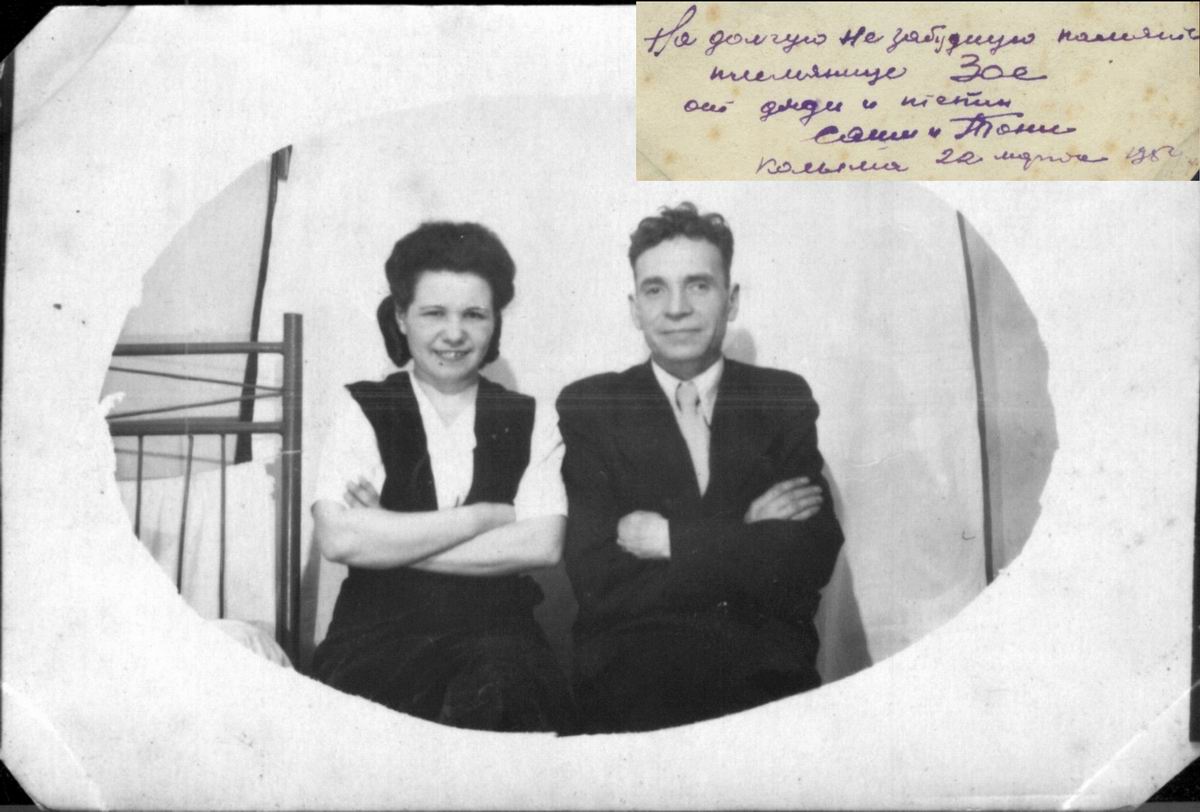 На долгую не забудную память
племянице Зое
от дяди и тётии
Саши и Тони
Колыма 22 марта